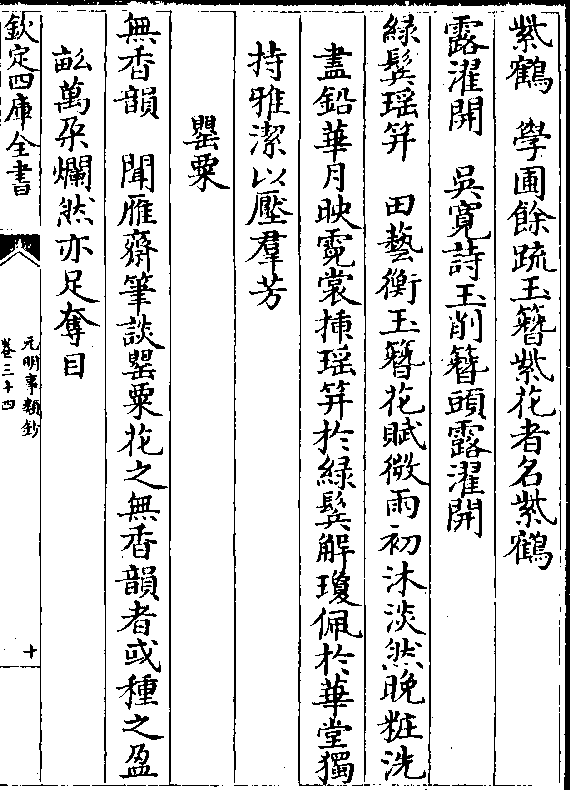 紫鶴　學圃餘疏玉簪紫花者名紫鶴
露濯開　吳寛詩玉削簪頭露濯開
緑鬓瑶笄　田藝衡玉簪花賦微雨初沐淡然晚粧洗
盡鉛華月映霓裳揷瑶笄於緑鬓解瓊佩於華堂獨
持雅潔以壓羣芳
罌粟
無香韻　聞雁齋筆談罌粟花之無香韻者或種之盈
畝萬朶爛然亦足奪目
欽定四庫全書
元明事類鈔
卷三十四
十